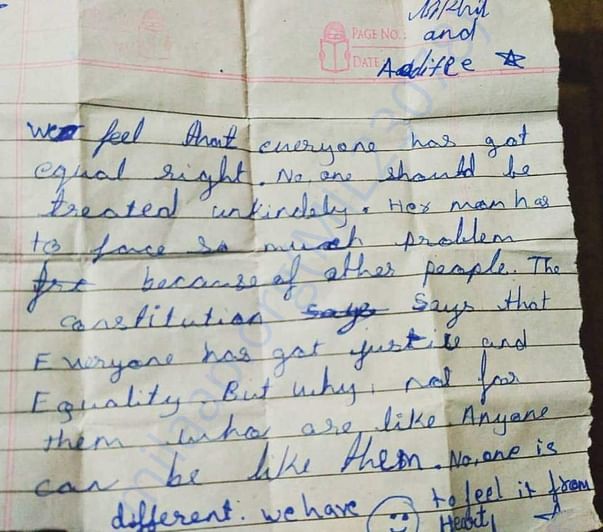 Nikhil
PAGE NO.: and
DATE Aaditee
We feel that everyone has got
equal right. No one should be
treated unkindely. Her man has
to face so much problem
because of other people. The
constitution says Says that
Everyone has got justice and
Equality. But why, not for
them who are like. Anyone
can be like them. No, one is
different. we have to feel it from
Heart,